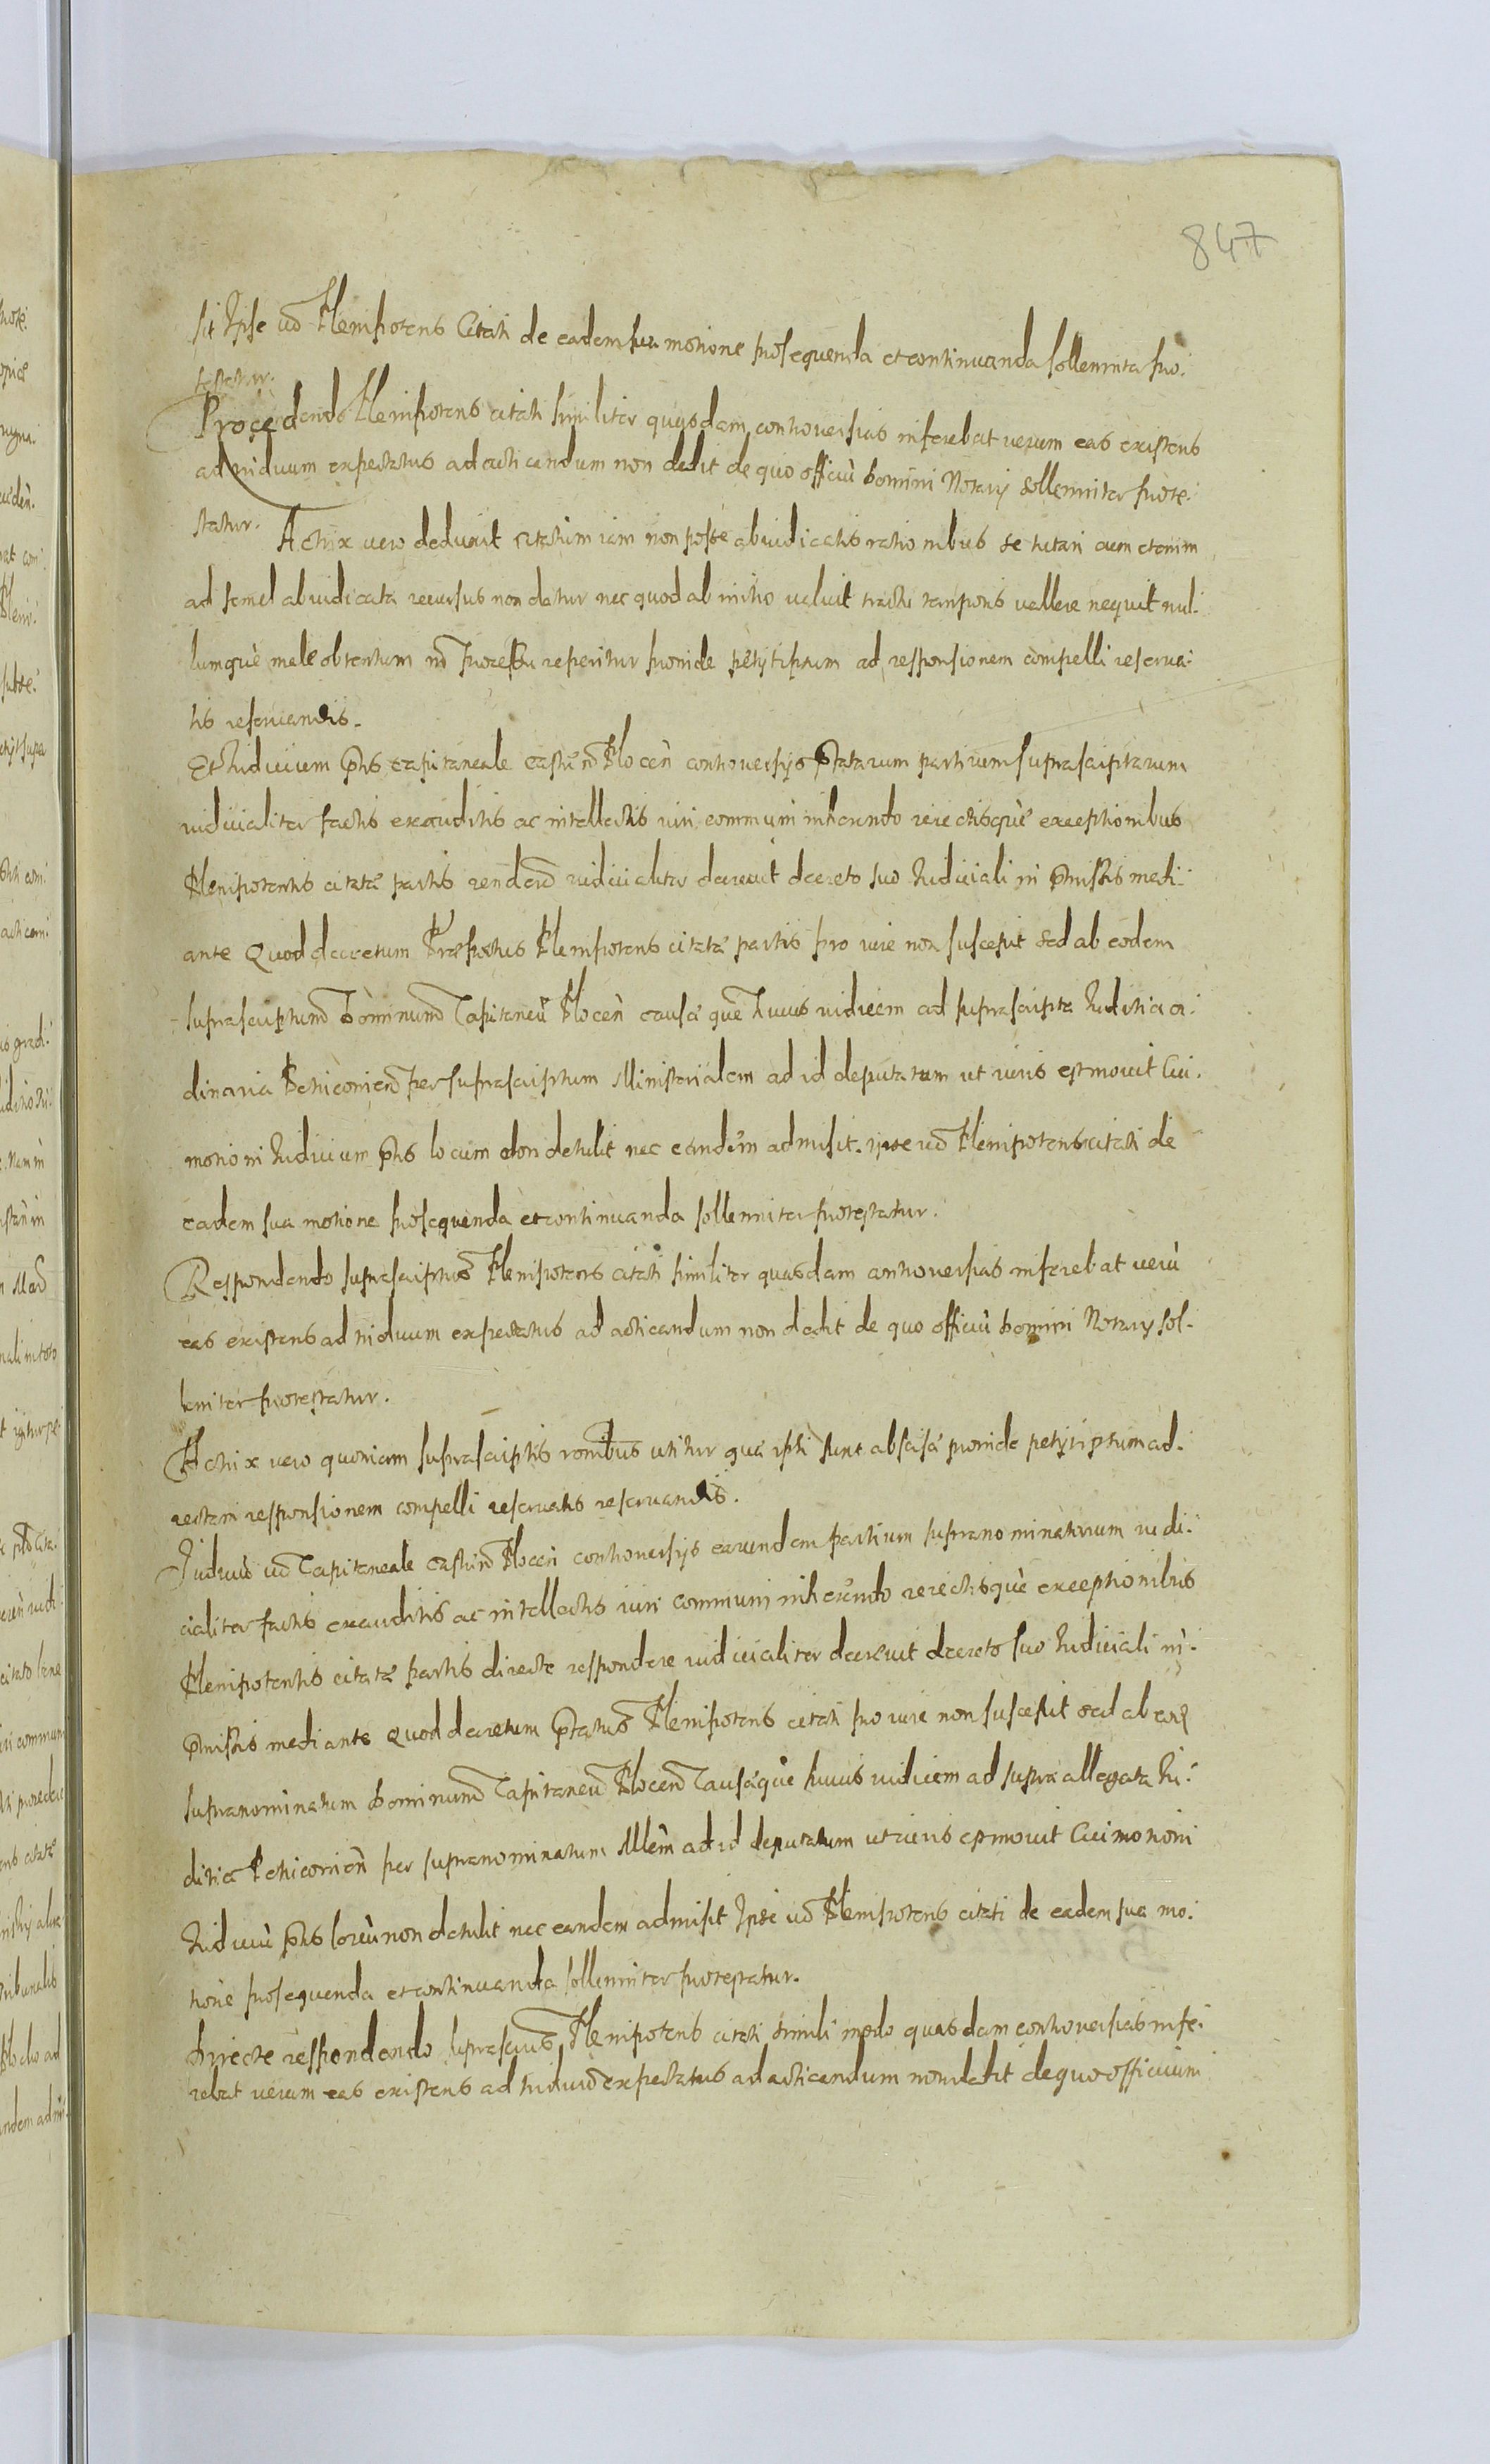 847
sit Ipse vō Plenipotens Citati de eadem sua motione prosequenda et continuanda sollemniter pro:
testatur.
Procedendo Plenipotens citati similiter quasdam controversias inferebat verum eas existens
ad triduum expectatus ad acticandum non dedit de quo officiū Domini Notarij sollemniter prote:
statur. Actrix vero deduxit citatum iam non posse abiudicatis rationibus se tutari cum etenim
ad semel abiudicata recursus non datur nec quod ab initio valuit tractu temporis vallere nequit nul:
lumquè male obtentum in processu reperitur proinde petijt ipsum ad responsionem compelli reserva:
tis reservandis.
Et Iudicium pns capitaneale castrēn Plocēn controversijs ptatarum partium suprascriptarum
iudicialiter factis exauditis ac intellectis iuri communi inhaerendo reiectisquè exceptionibus
Plenipotentis citatæ partis iudicialiter decrevit decreto suo Iudiciali in pmissis medi:
ante Quod decretum Plenipotens citatæ partis pro iure non suscepit sed ab eodem
suprascriptum Dominum Capitaneū Plocēn causæ quē huius iudicem ad suprascripta Iuditia or:
dinaria per suprascriptum Ministerialem ad id deputatum ut iuris est movit Cui
motioni Iudicium pns locum non detulit nec eandem admisit. ipse vō Plenipotens citati de
eadem sua motione prosequenda et continuanda sollemniter protestatur.
Respondendo suprascriptus Plenipotens citati similiter quasdam controversias inferebat verū
eas existens ad triduum expectatus ad acticandum non dedit de quo officiū Domini Notarij sol:
lemniter protestatur.
Actrix vero quoniam suprascriptis ronibus utitur quæ ipsi sunt abscisæ proinde petijt ipsum ad
rectam responsionem compelli reservatis reservandis.
Iudiciū vō Capitaneale castrēn Plocēn controversijs earundem partium supranominatarum iudi:
cialiter factis exauditis ac intellectis iuri communi inhærendo reiectisquè exceptionibus
Plenipotentis citatæ partis directe respondere iudicialiter decrevit decreto suo Iudiciali in:
pmissis mediante quod decretum ptatus Plenipotens citati pro iure non suscepit sed ab eod
supranominatum Dominum Capitaneū Plocēn Causæquè huius iudicem ad supra allegata Iu:
ditia per supranominatum Mlēm ad id deputatum ut iuris est movit Cui motioni
Iudiciū pns locū non detulit nec eandem admisit Ipse vō Plenipotens citati de eadem sua mo:
tione prosequenda et continuanda sollemniter protestatur.
Directe respondendo Plenipotens citati simili modo quasdam controversias infe:
rebat verum eas existens ad triduū expectatus ad acticandum non dedit de quo officium